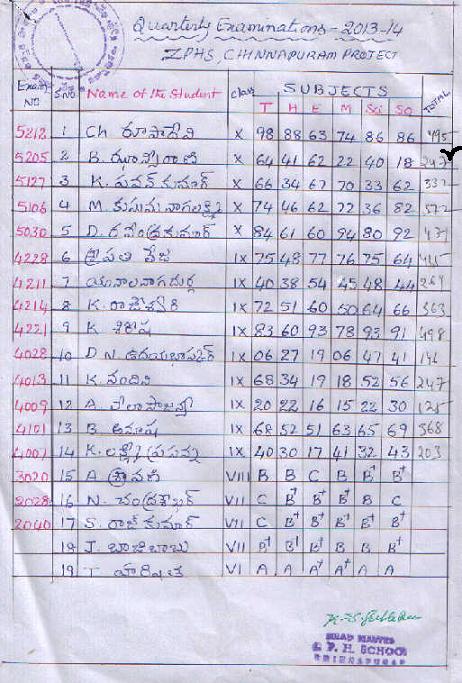 Quarterly Examinations - 2013-14
ZPHS, CHINNAPURAM PROJECT
Exam NO S.NO Name of the Student class SUBJECTS TOTAL
T H E M Sci SO
5212 1 Ch రూపాదేవి X 98 88 63 74 86 86 495
5205 2 B. ఝాన్సీరాణి X 64 41 62 22 40 18 247
5127 3 K. పవన్ కుమార్ X 66 34 67 70 33 62 332
5106 4 M. కుసుమ నాగలక్ష్మి X 74 46 62 72 36 82 372
5030 5 D. రవీంద్రకుమార్ X 84 61 60 94 80 92 471
4228 6 IX 75 48 77 76 75 64 415
4211 7 నాగదుర్గ IX 40 38 54 45 48 44 269
4214 8 K. రాజేశ్వరి IX 72 51 60 50 64 66 363
4221 9 K శిరీష IX 83 60 93 78 93 91 498
4028 10 D N. ఉదయభాస్కర్ IX 06 27 19 06 47 41 146
4013 11 K. నందిని IX 68 34 19 18 52 56 247
4009 12 A. IX 20 22 16 15 22 30 125
4101 13 B. అనూష IX 68 52 51 63 65 69 368
4007 14 K. లక్ష్మీ ప్రసన్న IX 40 30 17 41 32 43 203
3020 15 A శ్రావణి VIII B B C B B⁺ B⁺
2028 16 N. చంద్రశేఖర్ VII C B⁺ B⁺ B⁺ B C
2040 17 S. రాజ్ కుమార్ VII C B⁺ B⁺ B⁺ B⁺ B⁺
18 J. బాజిబాబు VII B⁺ B⁺ B⁺ B⁺ B⁺ B⁺
19 T హర్షిత VI A A A⁺ A⁺ A A
HEAD MASTER
Z. P. H. SCHOOL
CHINNAPURAM